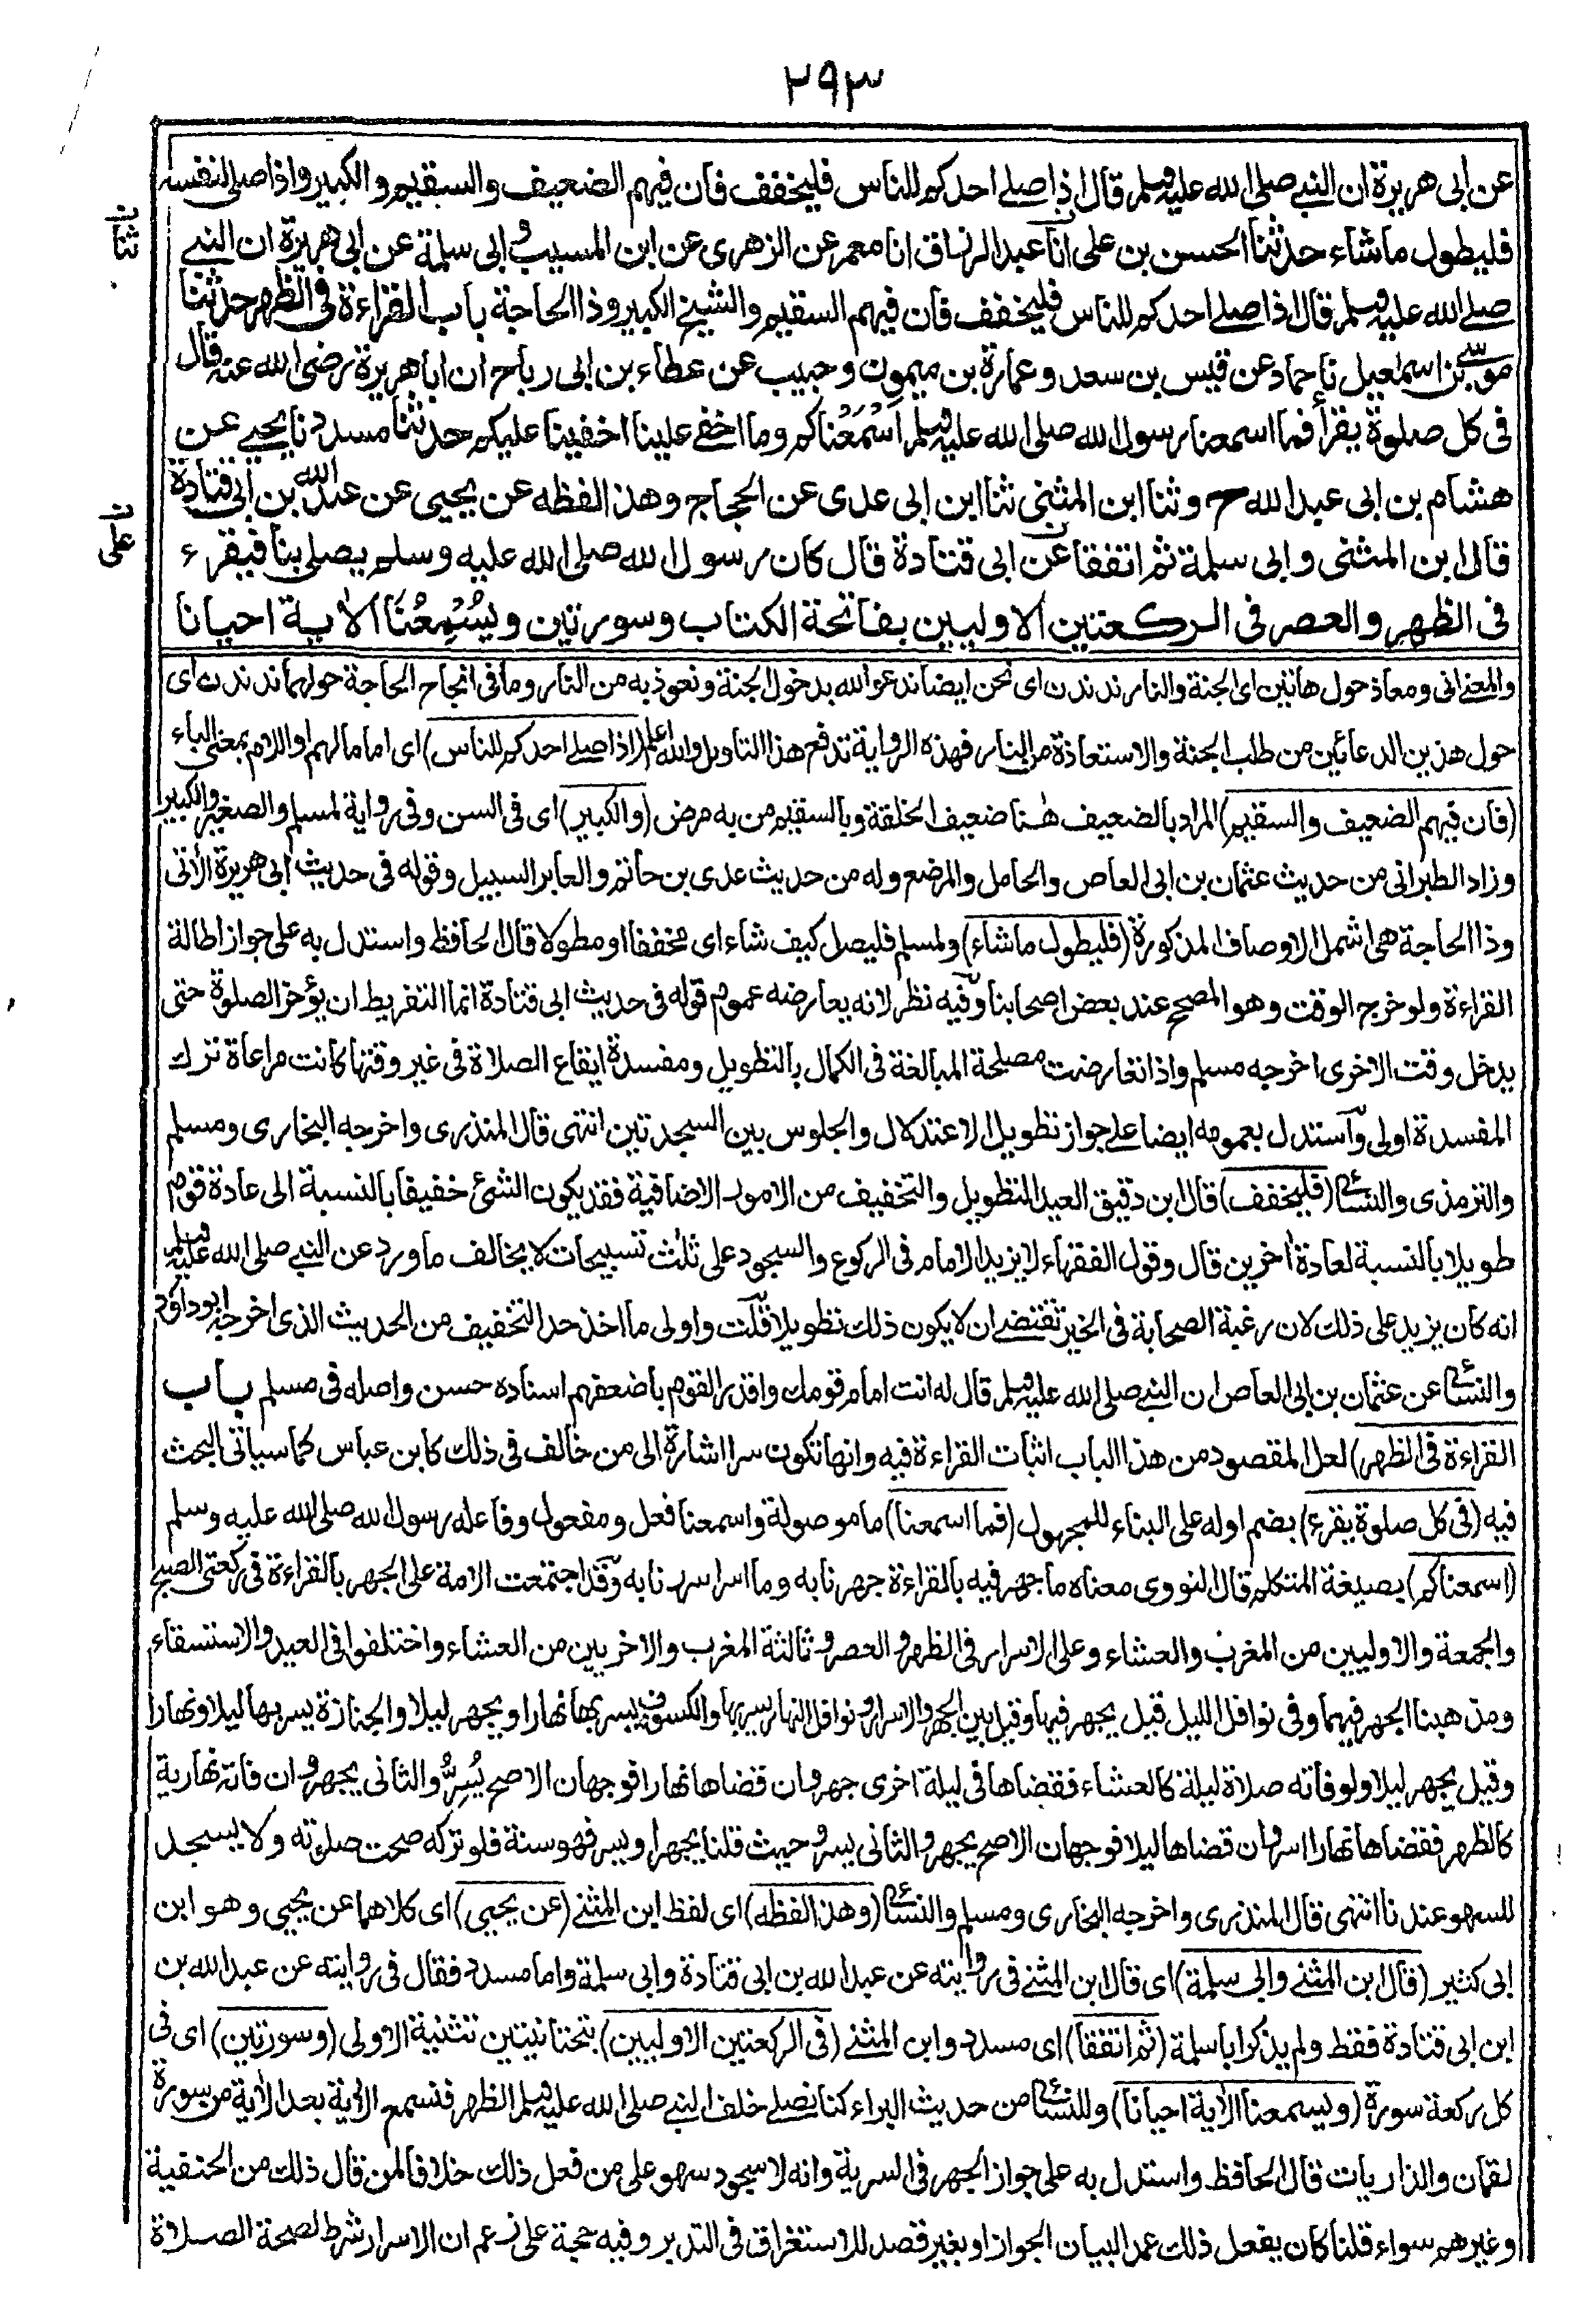 ٢٩٣
عن ابى هريرة ان النبي صلى الله عليه وسلم قال اذا صلے احدكم للناس فليخفف فان فيهم الضعيف والسقيم والكبير واذا صلى لنفسه
فليطول ماشاء حدثنا الحسن بن على انا عبد الرزاق انا معمر عن الزهرى عن ابن المسيب وابى سلمة عن ابى هريرة ان النبے
ن ثنا
صلے الله عليه وسلم قال اذا صلے احدكم للناس فليخفف فان فيهم السقيم والشيخ الكبير وذا الحاجة باب القراءة فى الظهر حدثنا
موسے بن اسمعيل نا حماد عن قيس بن سعد وعمارة بن ميمون وحبيب عن عطاء بن ابى رباح ان ابا هريرة رضى الله عنه قال
فى كل صلوة يقرأ فما اسمعنا رسول الله صلى الله عليه وسلم اَسْمَعْنَاكم وما اخفے علينا اخفينا عليكم حدثنا مسدد نا يحيے عن
هشام بن ابى عبد الله ح وثنا ابن المثنى ثنا ابن ابى عدى عن الحجاج وهذا لفظه عن يحيى عن عبد الله بن ابى قتادة
ن على
قال ابن المثنى وابى سلمة ثم اتفقا عن ابى قتادة قال كان رسول الله صلى الله عليه وسلم يصلى بنا فيقرء
فى الظهر والعصر فى الركعتين الاوليين بفاتحة الكتاب وسورتين ويُسْمِعُنَا الاٰية احيانا
والمعنے انى ومعاذ حول هاتين اى الجنة والنار ندندن اى نحن ايضا ندعو الله بدخول الجنة ونعوذ به من النار وما فى انجاح الحاجة حولهما ندندن اى
حول هذين الدعائين من طلب الجنة والاستعاذة من النار فهذه الرواية تدفع هذا التاويل والله اعلم (اذا صلے احدكم للناس) اى اماما لهم او اللام بمعنى الباء
(فان فيهم الضعيف والسقيم) المراد بالضعيف هٰهنا ضعيف الخلقة وبالسقيم من به مرض (والكبير) اى فى السن وفى رواية لمسلم والصغير والكبير
وزاد الطبرانى من حديث عثمان بن ابى العاص والحامل والمرضع وله من حديث عدى بن حاتم والعابر السبيل وقوله فى حديث ابى هريرة الاٰتى
وذا الحاجة هى اشمل الاوصاف المذكورة (فليطول ماشاء) ولمسلم فليصل كيف شاء اى مخففا او مطولا قال الحافظ واستدل به على جواز اطالة
القراءة ولو خرج الوقت وهو المصحح عند بعض اصحابنا وفيه نظر لانه يعارضه عموم قوله فى حديث ابى قتادة انما التفريط ان يؤخر الصلوة حتى
يدخل وقت الاخرى اخرجه مسلم واذا تعارضت مصلحة المبالغة فى الكمال بالتطويل ومفسدة ايقاع الصلاة فى غير وقتها كانت مراعاة ترك
المفسدة اولى واستدل بعمومه ايضا علے جواز تطويل الاعتدال والجلوس بين السجدتين انتهى قال المنذرى واخرجه البخارى ومسلم
والترمذى والنسائے (فليخفف) قال ابن دقيق العيد التطويل والتخفيف من الامور الاضافية فقد يكون الشئ خفيفا بالنسبة الى عادة قوم
طويلا بالنسبة لعادة اٰخرين قال وقول الفقهاء لايزيد الامام فى الركوع والسجود على ثلٰث تسبيحات لا يخالف ماورد عن النبے صلى الله عليه وسلم
انه كان يزيد على ذلك لان رغبة الصحابة فى الخير تقتضے ان لا يكون ذلك تطويلا قلت واولى ما اخذ حد التخفيف من الحديث الذى اخرجه ابوداؤد
والنسائے عن عثمان بن ابى العاص ان النبے صلى الله عليه وسلم قال له انت امام قومك واقدر القوم باضعفهم اسناده حسن واصله فى مسلم باب
القراءة فى الظهر) لعل المقصود من هذا الباب اثبات القراءة فيه وانها تكون سرا اشارة الى من خالف فى ذلك كابن عباس كما سياتى البحث
فيه (فى كل صلوة يقرء) بضم اوله على البناء للمجهول (فما اسمعنا) ما موصولة واسمعنا فعل ومفعول وفاعله رسول الله صلى الله عليه وسلم
(اسمعناكم) بصيغة المتكلم قال النووى معناه ما جهر فيه بالقراءة جهرنا به وما اسر اسررنا به وقد اجتمعت الامة على الجهر بالقراءة فى ركعتى الصبح
والجمعة والاوليين من المغرب والعشاء وعلى الاسرار فى الظهر والعصر وثالثة المغرب والاخريين من العشاء واختلفوا فى العيد والاستسقاء
ومذهبنا الجهر فيهما وفى نوافل الليل قيل يجهر فيها وقيل بين الجهر والاسرار ونوافل النهار يسر بها والكسوف يسر بها نهارا ويجهر ليلا والجنازة يسر بها ليلا ونهارا
وقيل يجهر ليلا ولو فاته صلاة ليلة كالعشاء فقضاها فى ليلة اخرى جهر وان قضاها نهارا فوجهان الاصح يُسِرُّ والثانى يجهر وان فاته نهارية
كالظهر فقضاها نهارا اسر وان قضاها ليلا فوجهان الاصح يجهر والثانى يسر وحيث قلنا يجهر او يسر فهو سنة فلو تركه صحت صلوته ولا يسجد
للسهو عندنا انتهى قال المنذرى واخرجه البخارى ومسلم والنسائے (وهذا لفظه) اى لفظ ابن المثنے (عن يحيى) اى كلاهما عن يحيى وهو ابن
ابى كثير (قال ابن المثنے وابى سلمة) اى قال ابن المثنے فى روايته عن عبد الله بن ابى قتادة وابى سلمة واما مسدد فقال فى روايته عن عبد الله بن
ابن ابى قتادة فقط ولم يذكر ابا سلمة (ثم اتفقا) اى مسدد وابن المثنے (فى الركعتين الاوليين) بتحتانيتين تثنية الاولى (وسورتين) اى فى
كل ركعة سورة (ويسمعنا الاٰية احيانا) وللنسائے من حديث البراء كنا نصلے خلف النبے صلى الله عليه وسلم الظهر فنسمع الاٰية بعد الاٰية من سورة
لقمان والذاريات قال الحافظ واستدل به على جواز الجهر فى السرية وانه لا سجود سهو على من فعل ذلك خلافا لمن قال ذلك من الحنفية
وغيرهم سواء قلنا كان يفعل ذلك عمدا لبيان الجواز او بغير قصد للاستغراق فى التدبر وفيه حجة على من زعم ان الاسرار شرط لصحة الصلاة